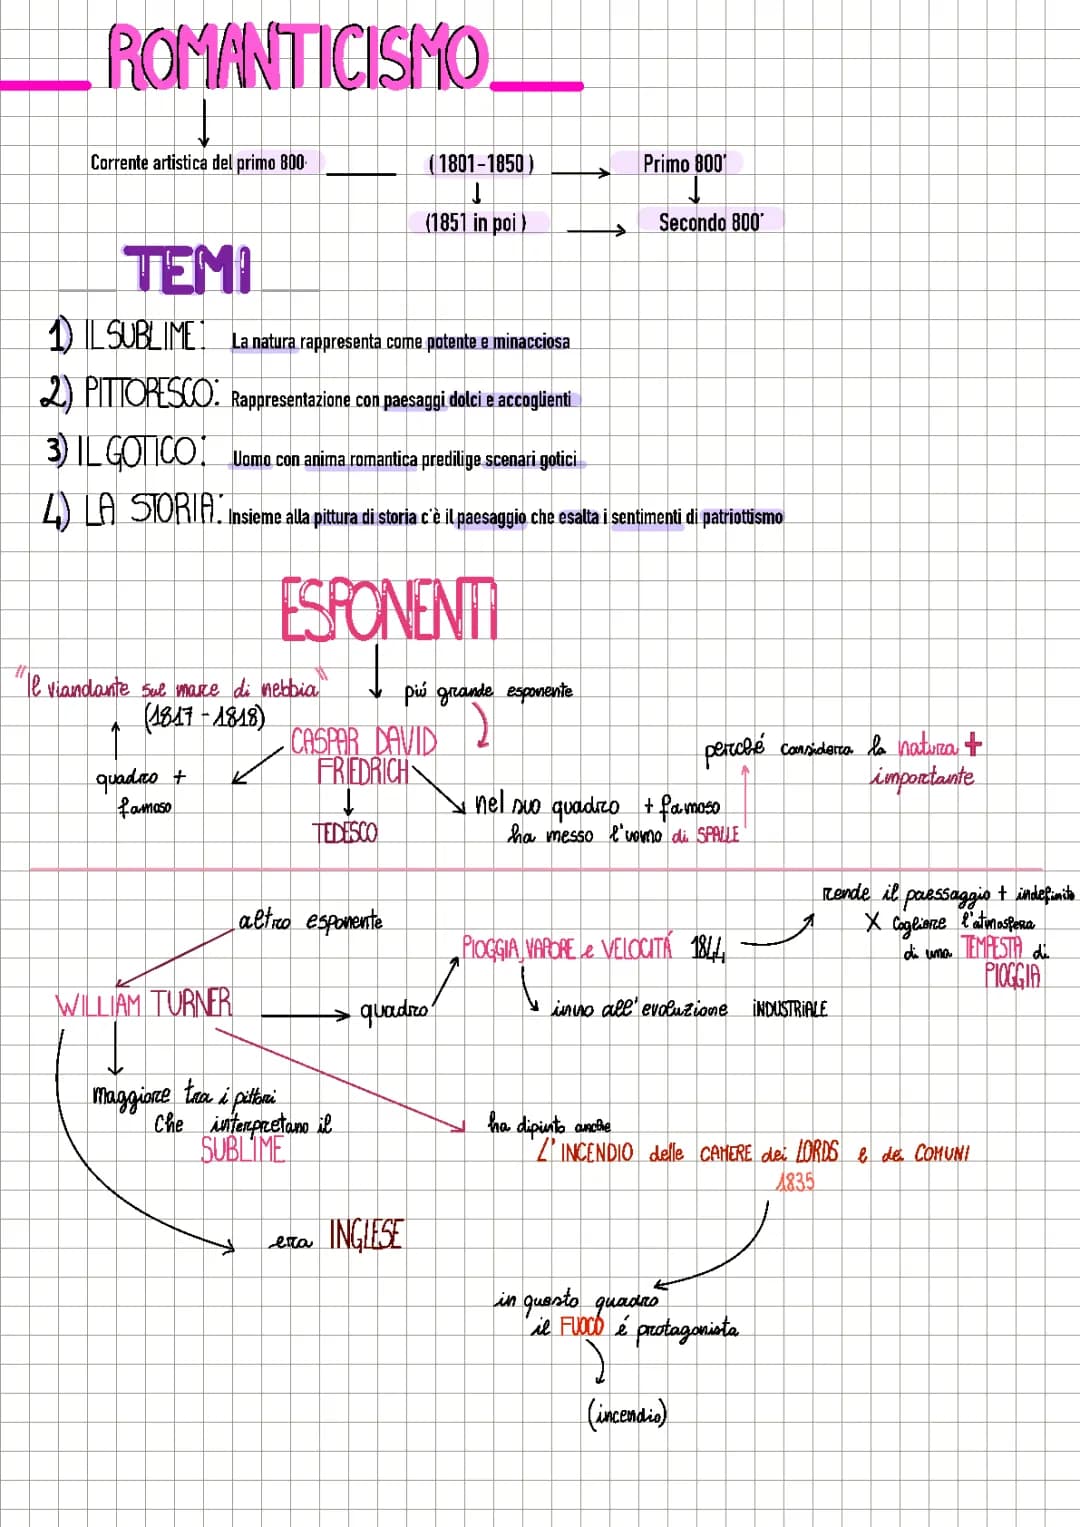 ROMANTICISMO
Corrente artistica del primo 800'
(1801-1850)
Primo 800'
(1851 in poi)
Secondo 800'
TEMI
1) IL SUBLIME: La natura rappresenta come potente e minacciosa
2) PITTORESCO: Rappresentazione con paesaggi dolci e accoglienti
3) IL GOTICO: Uomo con anima romantica predilige scenari gotici
4) LA STORIA: Insieme alla pittura di storia c'è il paesaggio che esalta i sentimenti di patriottismo
ESPONENTI
"Il viandante sul mare di nebbia"
(1817-1818)
quadro +
famoso
piú grande esponente
CASPAR DAVID
FRIEDRICH
TEDESCO
nel suo quadro + famoso
ha messo l'uomo di SPALLE
perché considera la natura +
importante
altro esponente
WILLIAM TURNER
quadro
PIOGGIA, VAPORE e VELOCITÁ 1844
rende il paessaggio + indefinito
X Cogliere l'atmosfera
di una TEMPESTA di
PIOGGIA
inno all'evoluzione INDUSTRIALE
maggiore tra i pittori
Che interpretano il
SUBLIME
ha dipinto anche
L'INCENDIO delle CAMERE dei LORDS e dei COMUNI
1835
era INGLESE
in questo quadro
il FUOCO é protagonista
(incendio)